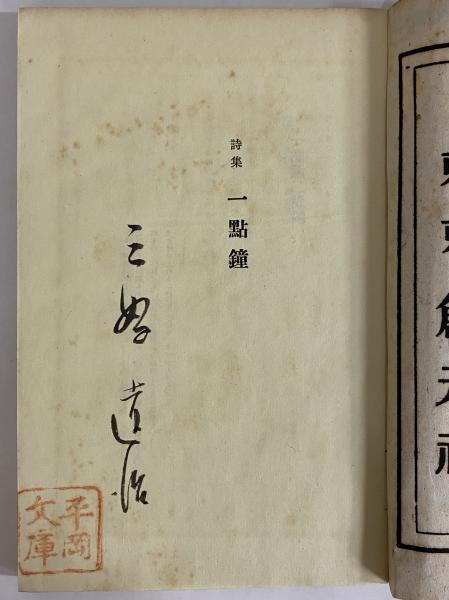 東京創元社
詩集 一點鐘
三好達治
平岡
文庫